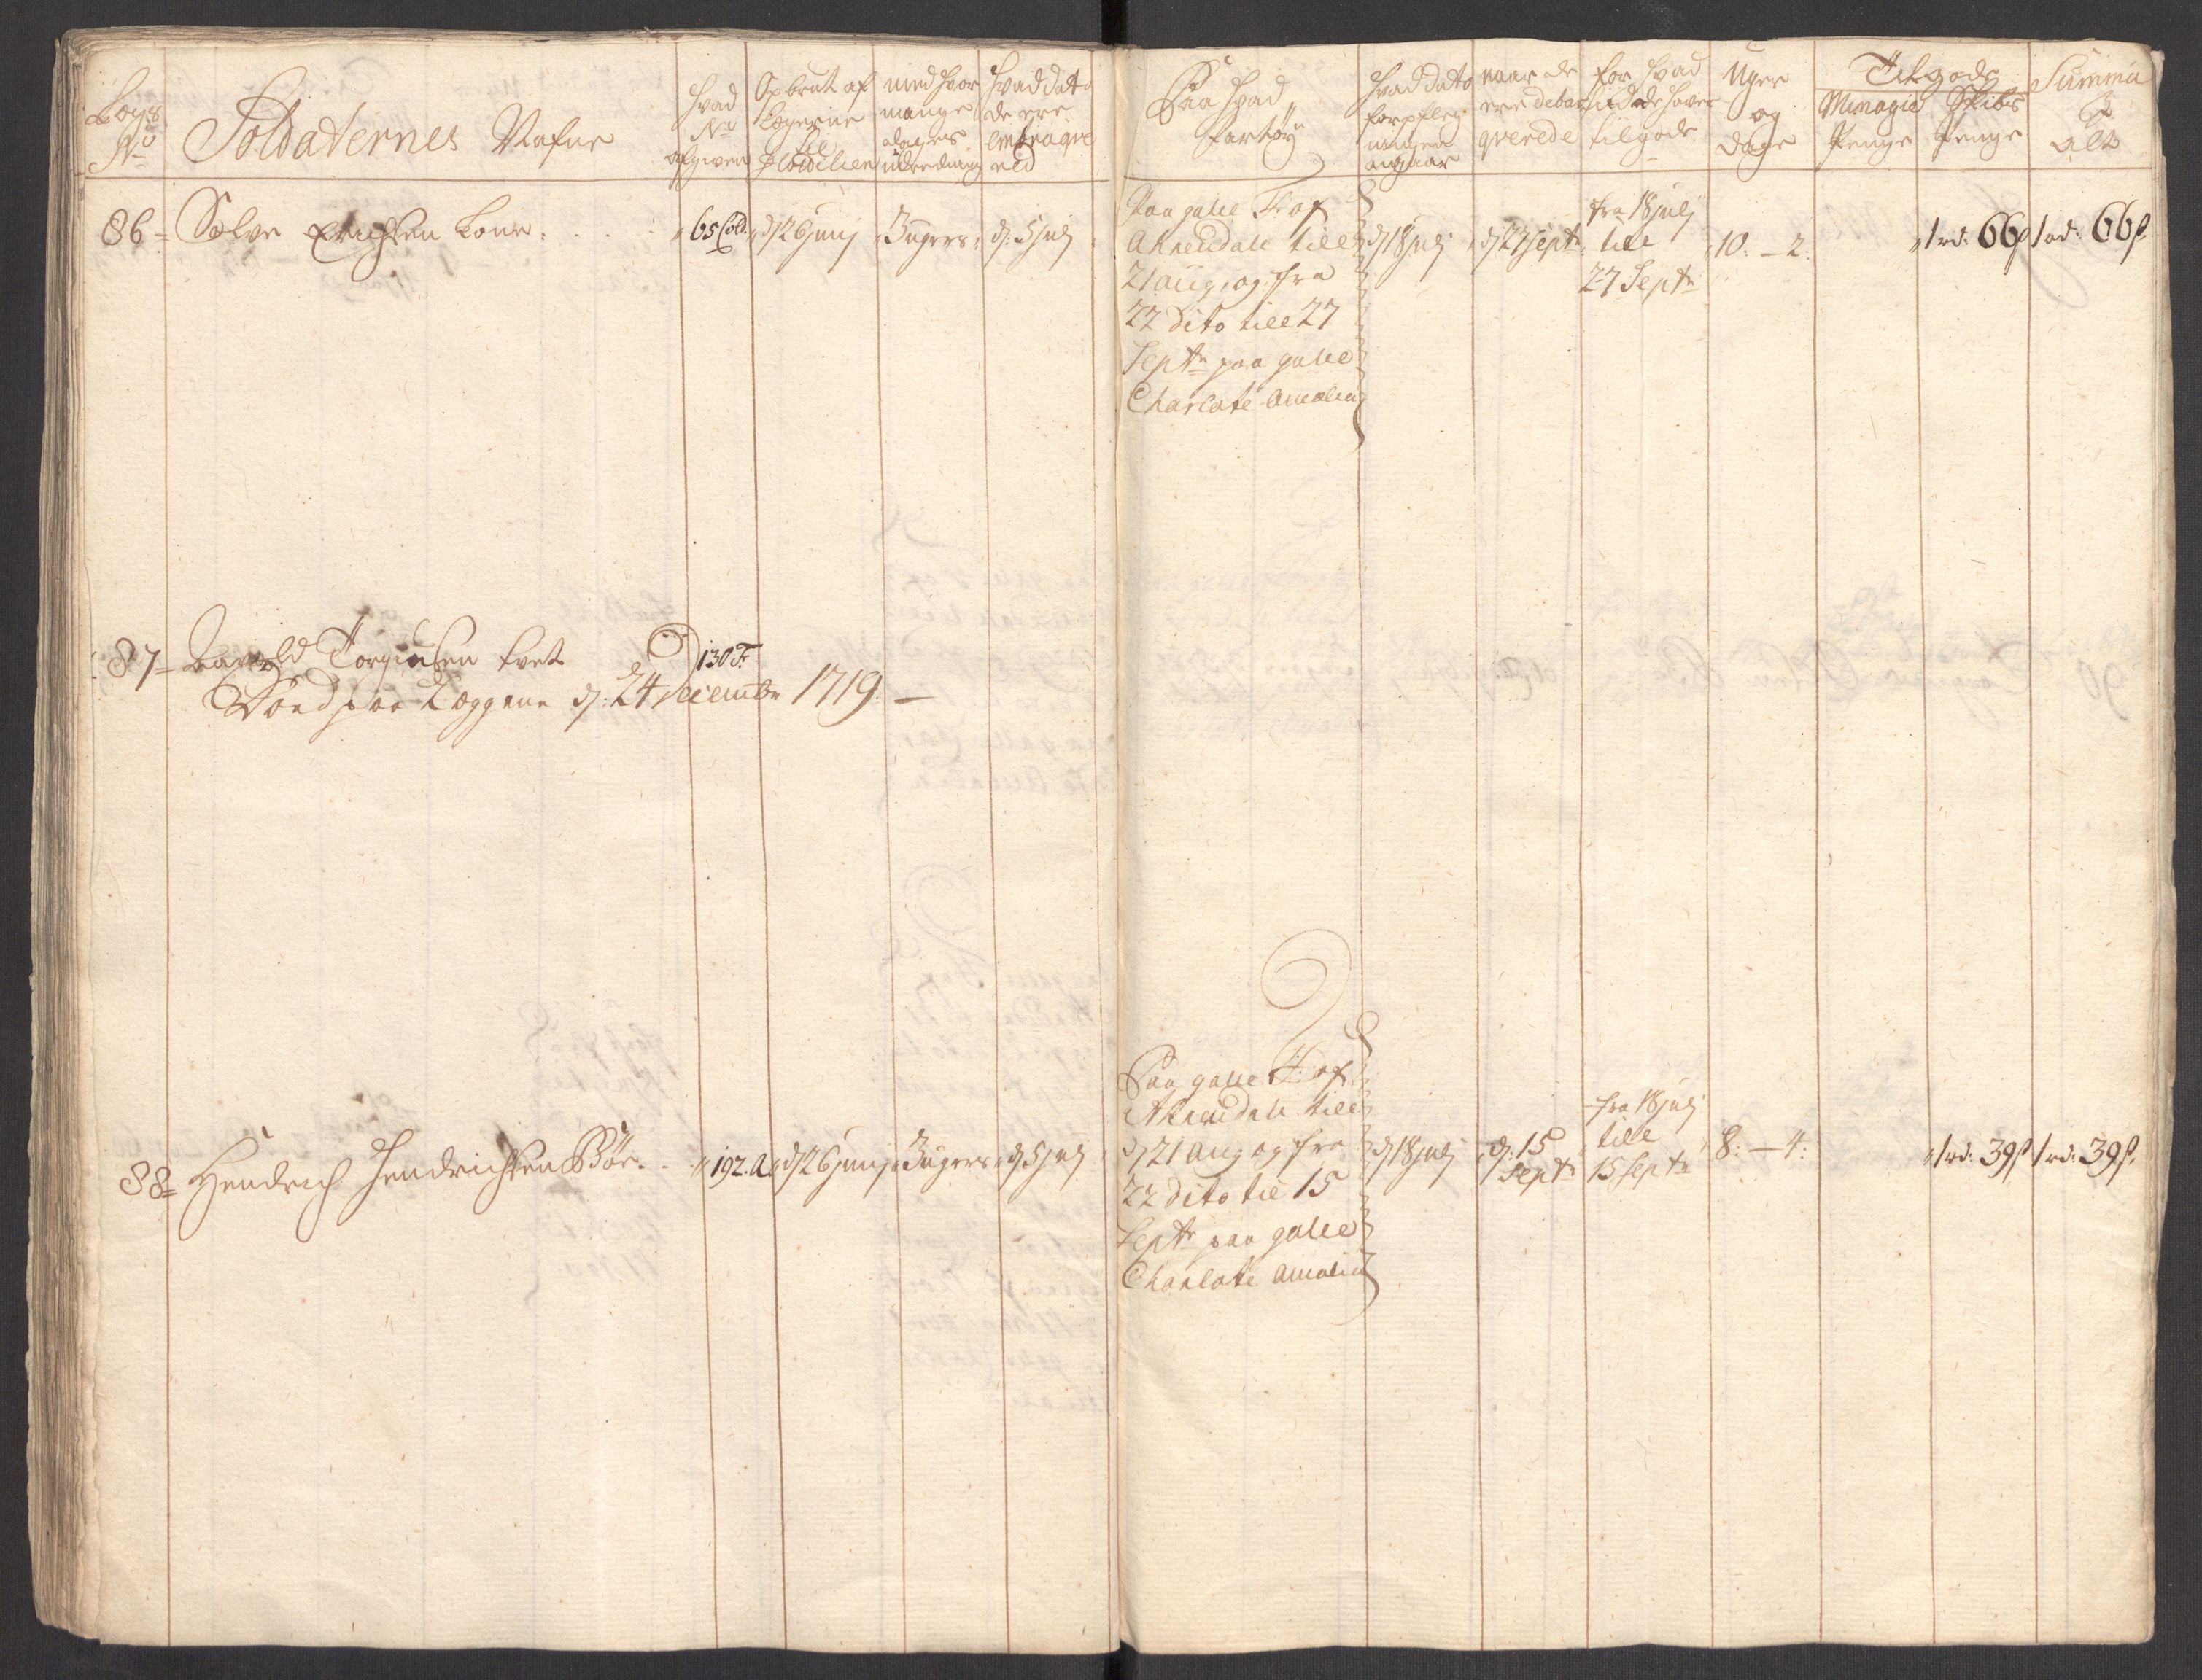 Lægs No
Soldaternes Nafne
hvad No afgiven
Opbrut af Lægerne til Flotilien
med hvor mange dages udredning
hvad dato de ere embraqve red
Paa hvad Fartøy
hvad dato forpfleg ningen angaar
naar de ere debar qverede
for hvad tid de haver tilgode
Uger og dage
Tilgode
Minagie Penge
Skibs Penge
Summa alt
86 Solve Erichsen
65 Cold. d 26 junij 3 ugers d: 5 julj
Paa galei Fr: af
Ahrendale till
21 aug: og fra
22 dito till 27
Septr paa galei
Charlote Amalia
d 18 julj d 27 Septr
fra 18 julj
till
27 Septr
10: - 2:
1 rd: 66 ß 1 rd: 66 ß
87 Torgiusen 130 F:
Død paa Læggene d: 24 Decembr 1719
88 Hendrich Hendrichsen Bøe 192. A d 26 junij 3 ugers d 5 julj
Paa galei Fr: af
Ahrendale till
d 21 aug og fra
22 dito til 15
Septr paa galei
Charlote Amalia
d 18 julj d: 15 Septr
fra 18 julj
till
15 Septr
8: - 4:
1 rd: 39 ß 1 rd: 39 ß